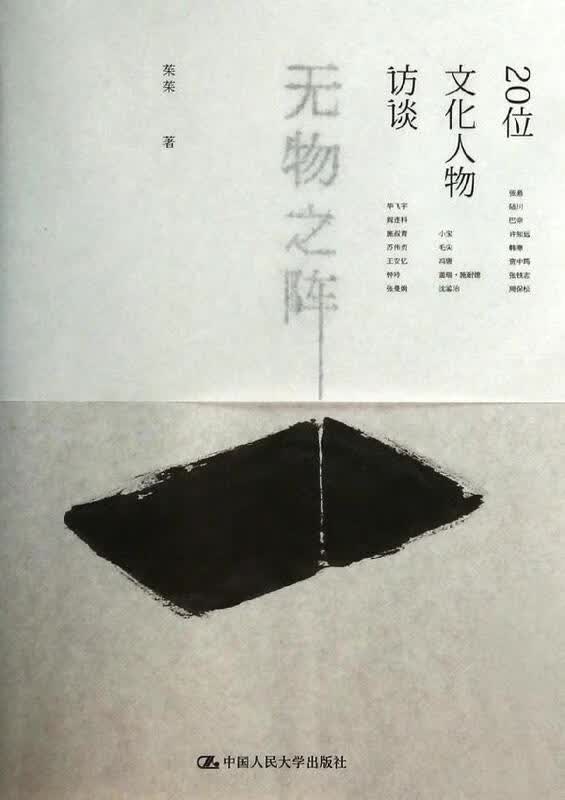 20位
文化人物
访谈
张悬
陆川
巴奈
许知远
韩寒
资中筠
张铁志
周保松
小宝
毛尖
冯唐
盖瑞·施耐德
沈鉴治
毕飞宇
阎连科
施叔青
苏伟贞
王安忆
钟玲
张曼娟
无物之阵
茱茱 著
中国人民大学出版社